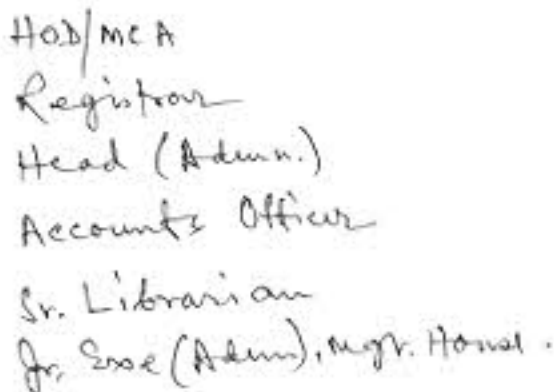 HOD/MCA
Registrar
Head (Admn.)
Accounts Officer
Sr. Librarian
Jr. Exe (Admn), Mgr. Hostel.